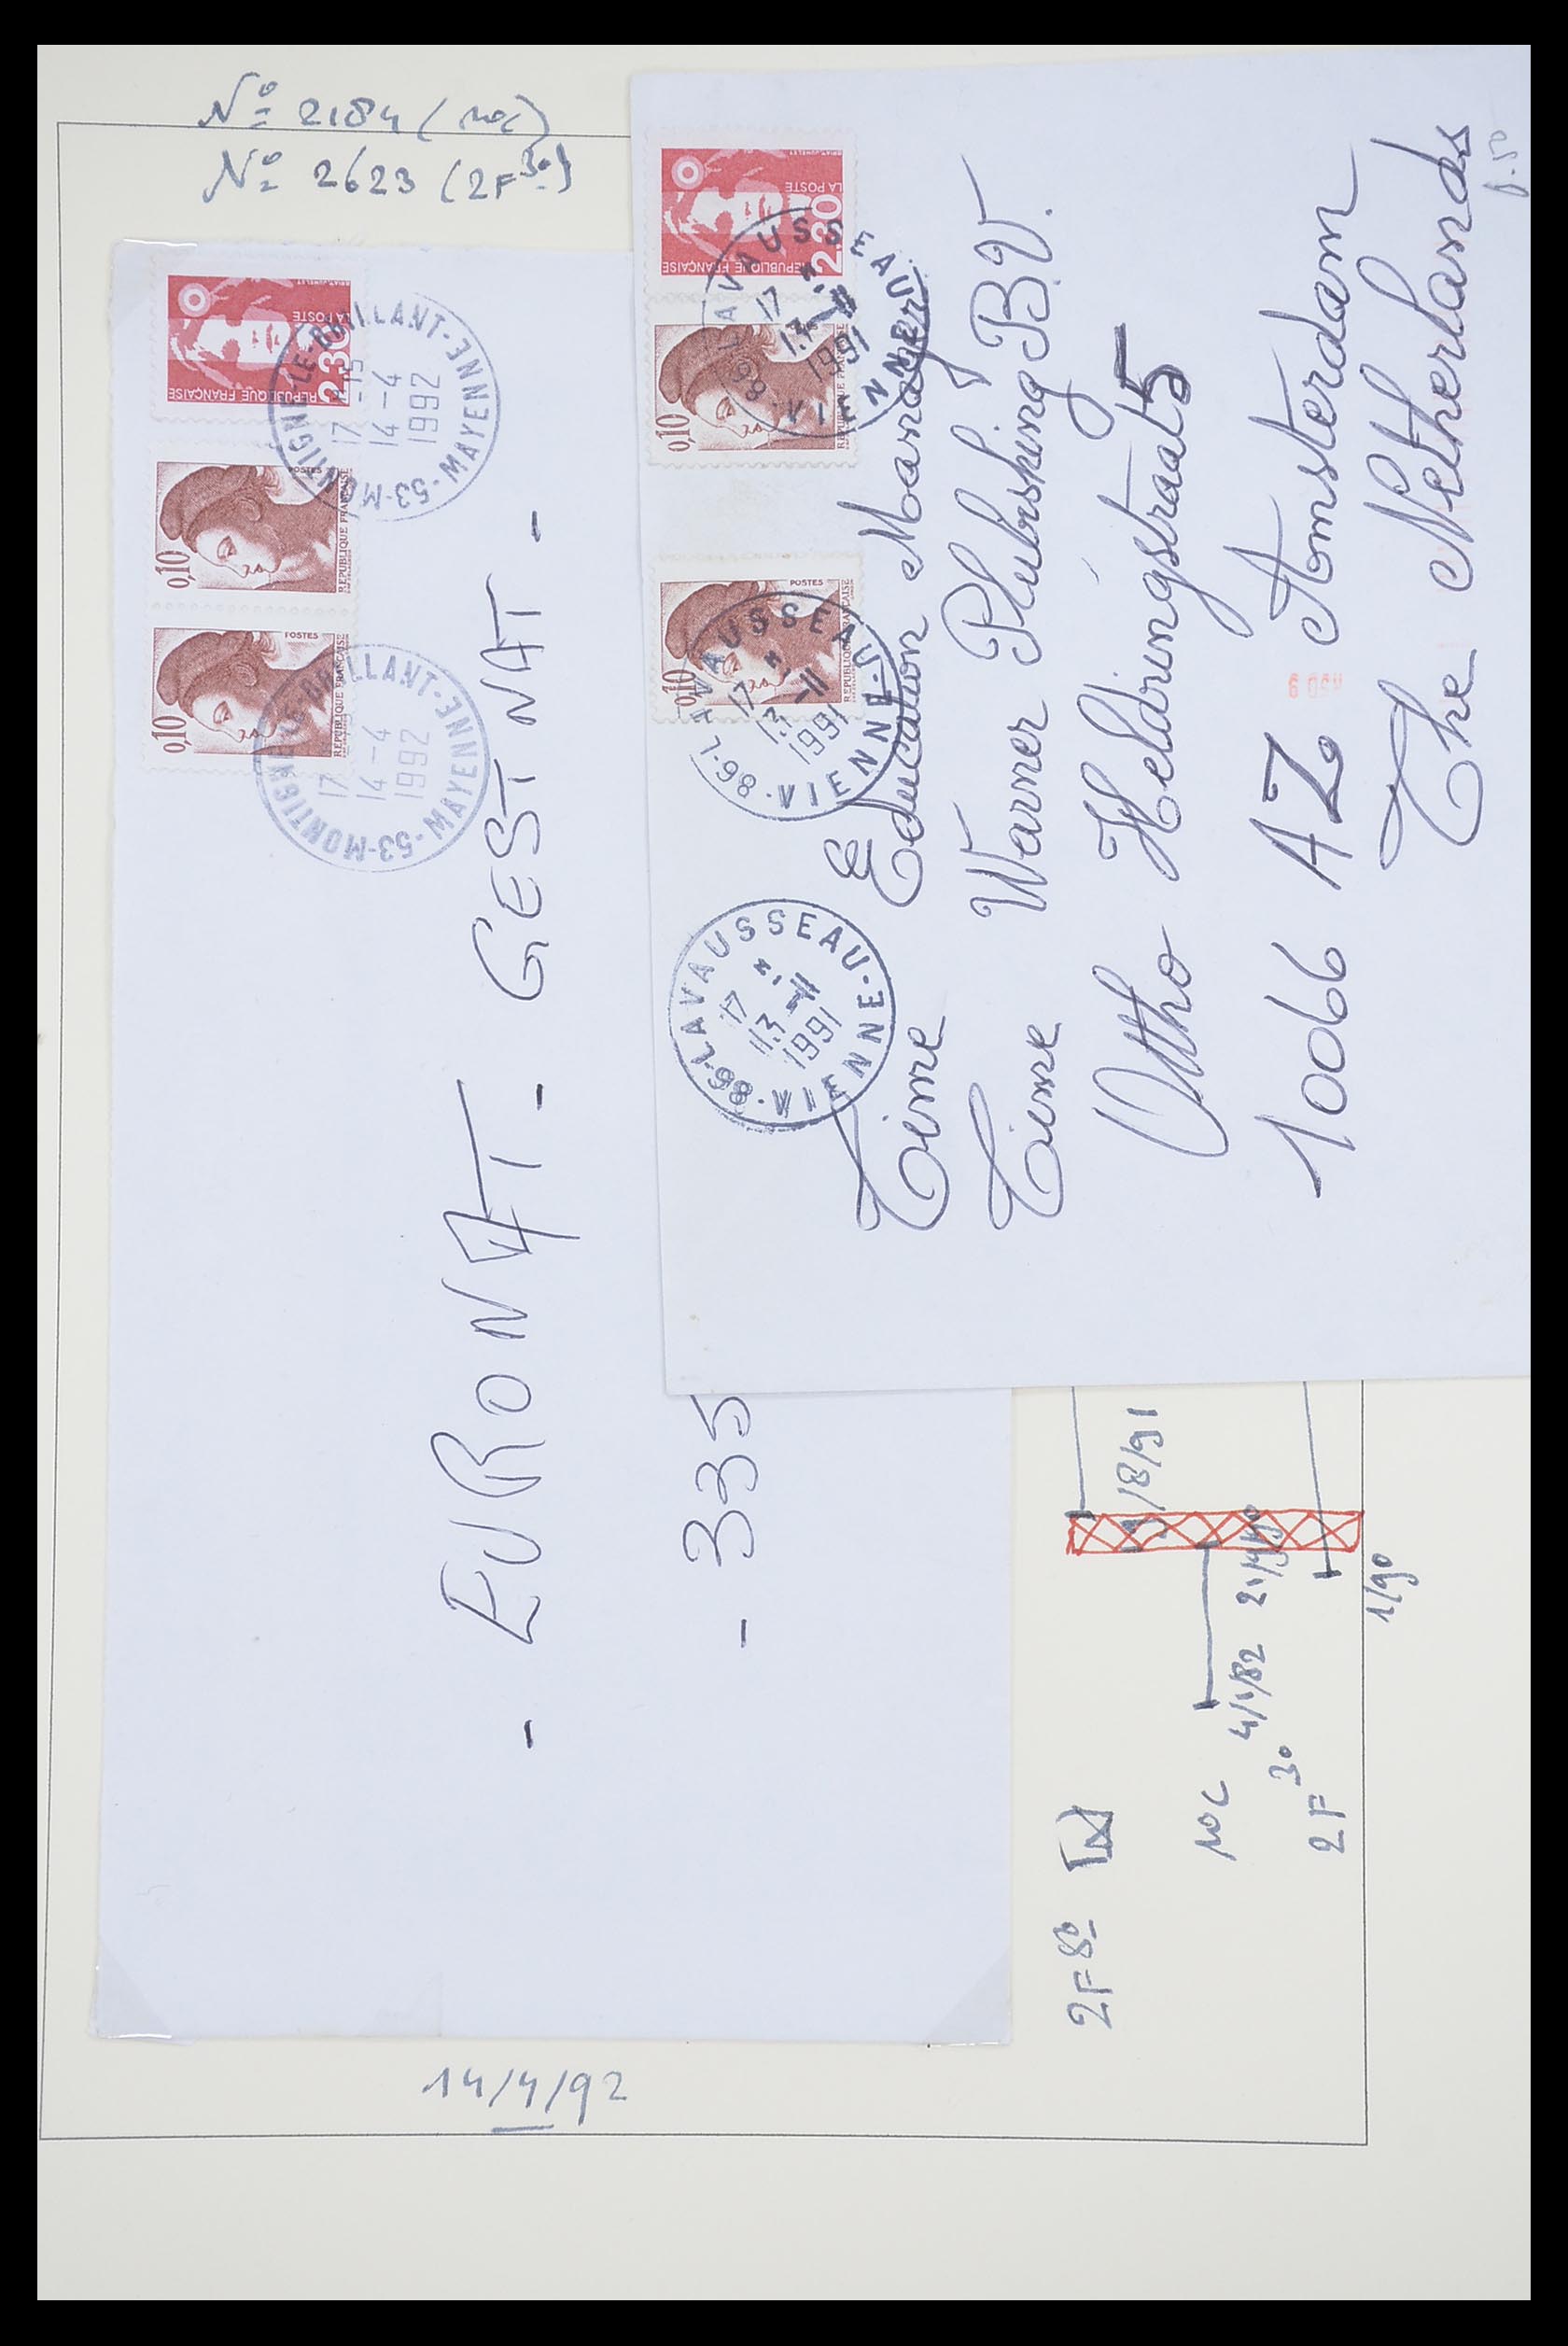 Nº 2184 (10c)
Nº 2623 (2F30)
REPUBLIQUE FRANÇAISE
2,30
LA POSTE
0,10
POSTES
REPUBLIQUE FRANÇAISE
0,10
POSTES
REPUBLIQUE FRANÇAISE
53-MONTIGNE-LE-BRILLANT-MAYENNE
17-15
14-4
1992
53-MONTIGNE-LE-BRILLANT-MAYENNE
17
14-4
1992
- EURONAT - GEST NAT -
- 335
REPUBLIQUE FRANÇAISE
2,30
LA POSTE
0,10
0,10
POSTES
86-LAVAUSSEAU-VIENNE
17 H
13-11
1991
86-LAVAUSSEAU-VIENNE
17 H
13-11
1991
86-LAVAUSSEAU-VIENNE
17 H
13-11
1991
Time & Education Manager
Time Warner Plubishing B.V.
Ottho Heldringstraat 5
10066 AZ Amsterdam
The Netherlands
2F50
/8/91
10c
4/1/82
2F30
1/90
14/4/92